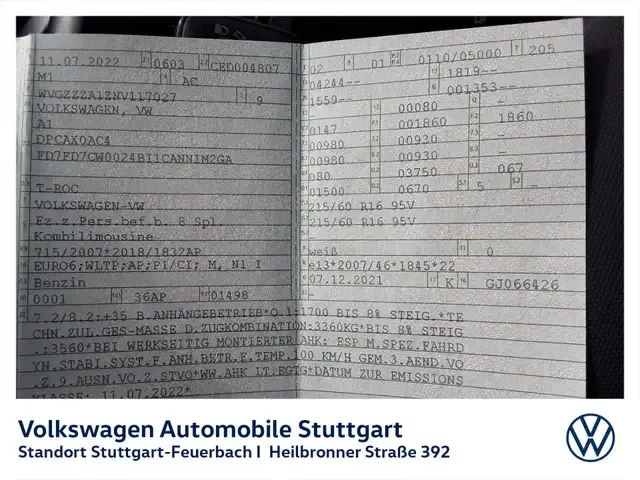 11.07.2022 0603 CED004807
M1 AC
WVGZZZA1ZNV117027 9
VOLKSWAGEN, VW
A1
DPCAX0AC4
FD7FD7CW0024BI1CANN1M2GA
T-ROC
VOLKSWAGEN-VW
Fz.z.Pers.bef.b. 8 Spl.
Kombilimousine
715/2007*2018/1832AP
EURO6;WLTP;AP;PI/CI; M, N1 I
Benzin
0001 36AP 01498
02 01 0110/05000 205
04244-- 1819--
1559-- 001353--
- 00080 -
0147 001860 1860
00980 00930 -
00980 00930 -
080 03750 067
01500 0670 5 -
215/60 R16 95V
215/60 R16 95V
weiß 0
e13*2007/46*1845*22
07.12.2021 K GJ066426
7.2/8.2:+35 B.ANHÄNGEBETRIEB*O.1:1700 BIS 8% STEIG.*TE
CHN.ZUL.GES-MASSE D.ZUGKOMBINATION:3360KG*BIS 8% STEIG
.:3560*BEI WERKSEITIG MONTIERTER AHK: ESP M.SPEZ.FAHRD
YN.STABI.SYST.F.ANH.BETR.F.TEMP.100 KM/H GEM.3.AEND.VO
.Z.9.AUSN.VO.Z.STVO*WW.AHK LT.EGTG*DATUM ZUR EMISSIONS
KLASSE: 11.07.2022*
Volkswagen Automobile Stuttgart
Standort Stuttgart-Feuerbach I Heilbronner Straße 392